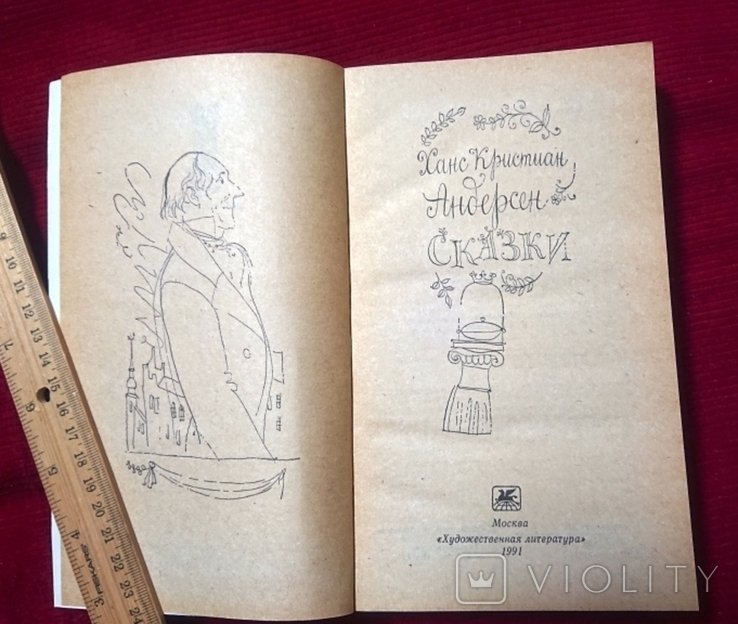 Ханс Кристиан
Андерсен
СКАЗКИ
Москва
«Художественная литература»
1991
VIOLITY